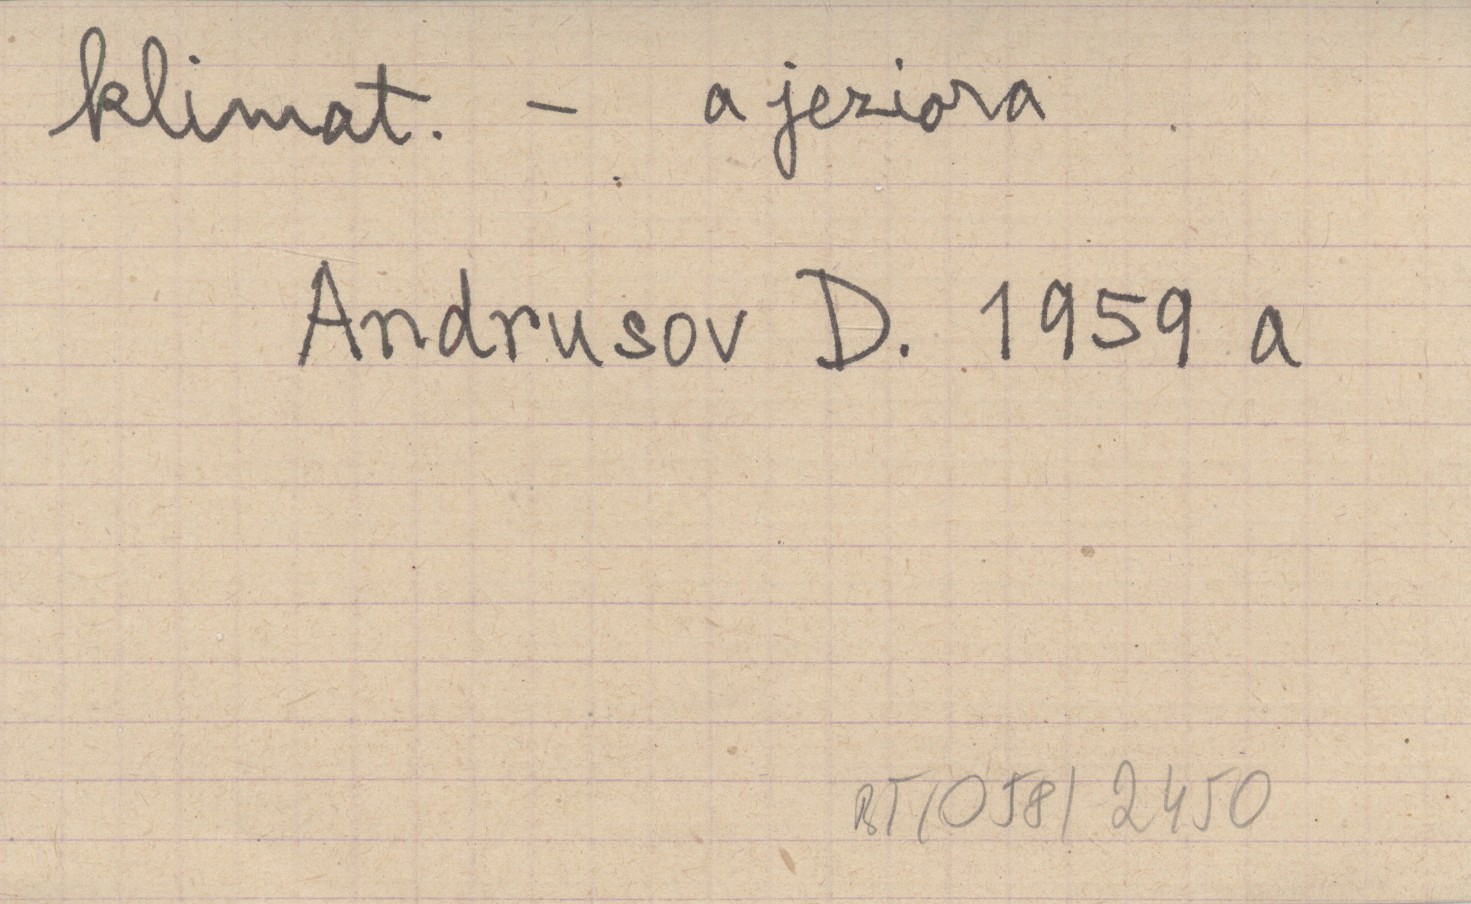 klimat. - a jeziora
Andrusov D. 1959 a
BT/058/2450